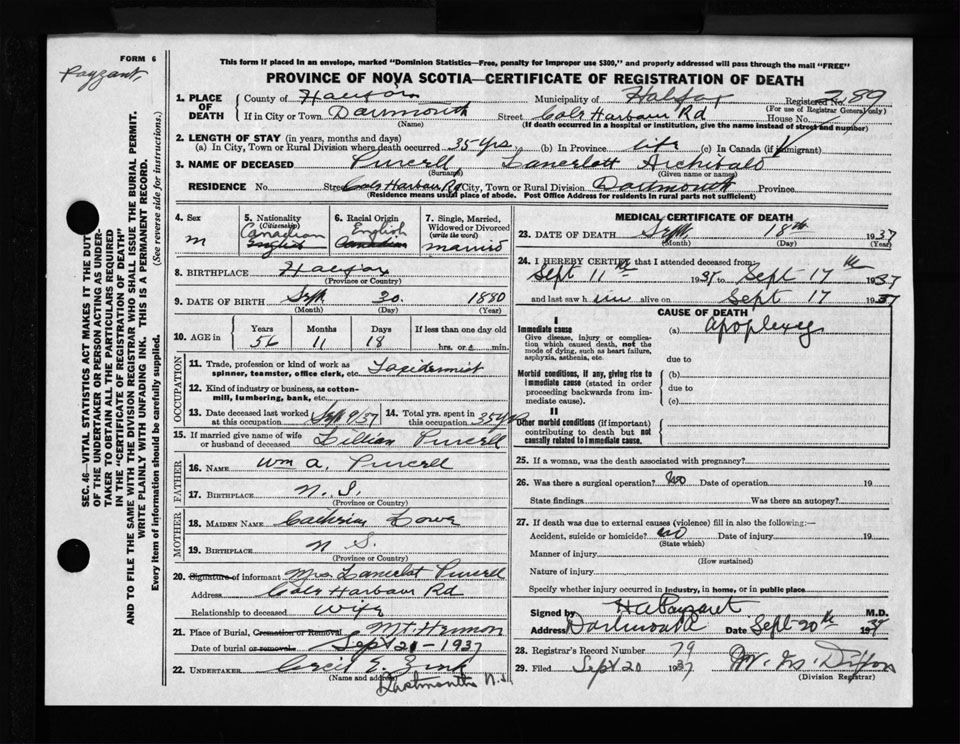 FORM 6
Payzant.
This form if placed in an envelope, marked "Dominion Statistics—Free, penalty for improper use $300," and properly addressed will pass through the mail "FREE"
PROVINCE OF NOVA SCOTIA—CERTIFICATE OF REGISTRATION OF DEATH
1. PLACE OF DEATH County of Halifax Municipality of Halifax Registered No. 289
(For use of Registrar General only)
If in City or Town Dartmouth Street Cole Harbour Rd House No.
(Name) (If death occurred in a hospital or institution, give the name instead of street and number)
2. LENGTH OF STAY (in years, months and days)
(a) In City, Town or Rural Division where death occurred 35 yrs. (b) In Province life (c) In Canada (if immigrant)
3. NAME OF DECEASED Purcell Lancelott Archibald
(Surname) (Given name or names)
RESIDENCE No. Street Cole Harbour Rd City, Town or Rural Division Dartmouth Province
(Residence means usual place of abode. Post Office Address for residents in rural parts not sufficient)
4. Sex m
5. Nationality (Citizenship) Canadian English
6. Racial Origin English Canadian
7. Single, Married, Widowed or Divorced (write the word) married
8. BIRTHPLACE Halifax
(Province or Country)
9. DATE OF BIRTH Sept. 30. 1880
(Month) (Day) (Year)
10. AGE in Years Months Days If less than one day old
56 11 18 hrs. or min.
OCCUPATION
11. Trade, profession or kind of work as spinner, teamster, office clerk, etc. Taxidermist
12. Kind of industry or business, as cotton-mill, lumbering, bank, etc.
13. Date deceased last worked at this occupation Sept 9/37 14. Total yrs. spent in this occupation 35 yrs
15. If married give name of wife or husband of deceased Lillian Purcell
FATHER
16. NAME Wm A. Purcell
17. BIRTHPLACE N. S.
(Province or Country)
MOTHER
18. MAIDEN NAME Catherine Lowe
19. BIRTHPLACE N S.
(Province or Country)
20. Signature of informant Mrs Lancelot Purcell
Address Cole Harbour Rd
Relationship to deceased wife
21. Place of Burial, Cremation or Removal Mt Hermon
Date of burial or removal Sept 20 - 1937
22. UNDERTAKER Cecil E. Zink
(Name and address)
Dartmouth N.S
MEDICAL CERTIFICATE OF DEATH
23. DATE OF DEATH Sept. 18th 1937
(Month) (Day) (Year)
24. I HEREBY CERTIFY that I attended deceased from
Sept 11th 1937 to Sept 17th 1937
and last saw him alive on Sept 17 1937
CAUSE OF DEATH
I
Immediate cause (a) apoplexy
Give disease, injury or complication which caused death, not the mode of dying, such as heart failure, asphyxia, asthenia, etc.
due to
Morbid conditions, if any, giving rise to immediate cause (stated in order proceeding backwards from immediate cause)
(b)
due to
(c)
II
Other morbid conditions (if important) contributing to death but not causally related to immediate cause.
25. If a woman, was the death associated with pregnancy?
26. Was there a surgical operation? no Date of operation 19
State findings Was there an autopsy?
27. If death was due to external causes (violence) fill in also the following:—
Accident, suicide or homicide? no Date of injury 19
(State which)
Manner of injury
(How sustained)
Nature of injury
Specify whether injury occurred in Industry, in home, or in public place
Signed by H A Payzant M.D.
Address Dartmouth Date Sept 20th 1937
28. Registrar's Record Number 79
29. Filed Sept 20 1937
(Division Registrar)
SEC. 46—VITAL STATISTICS ACT MAKES IT THE DUTY
OF THE UNDERTAKER OR PERSON ACTING AS UNDER-
TAKER TO OBTAIN ALL THE PARTICULARS REQUIRED
IN THE "CERTIFICATE OF REGISTRATION OF DEATH"
AND TO FILE THE SAME WITH THE DIVISION REGISTRAR WHO SHALL ISSUE THE BURIAL PERMIT.
WRITE PLAINLY WITH UNFADING INK. THIS IS A PERMANENT RECORD.
Every item of information should be carefully supplied. (See reverse side for instructions.)